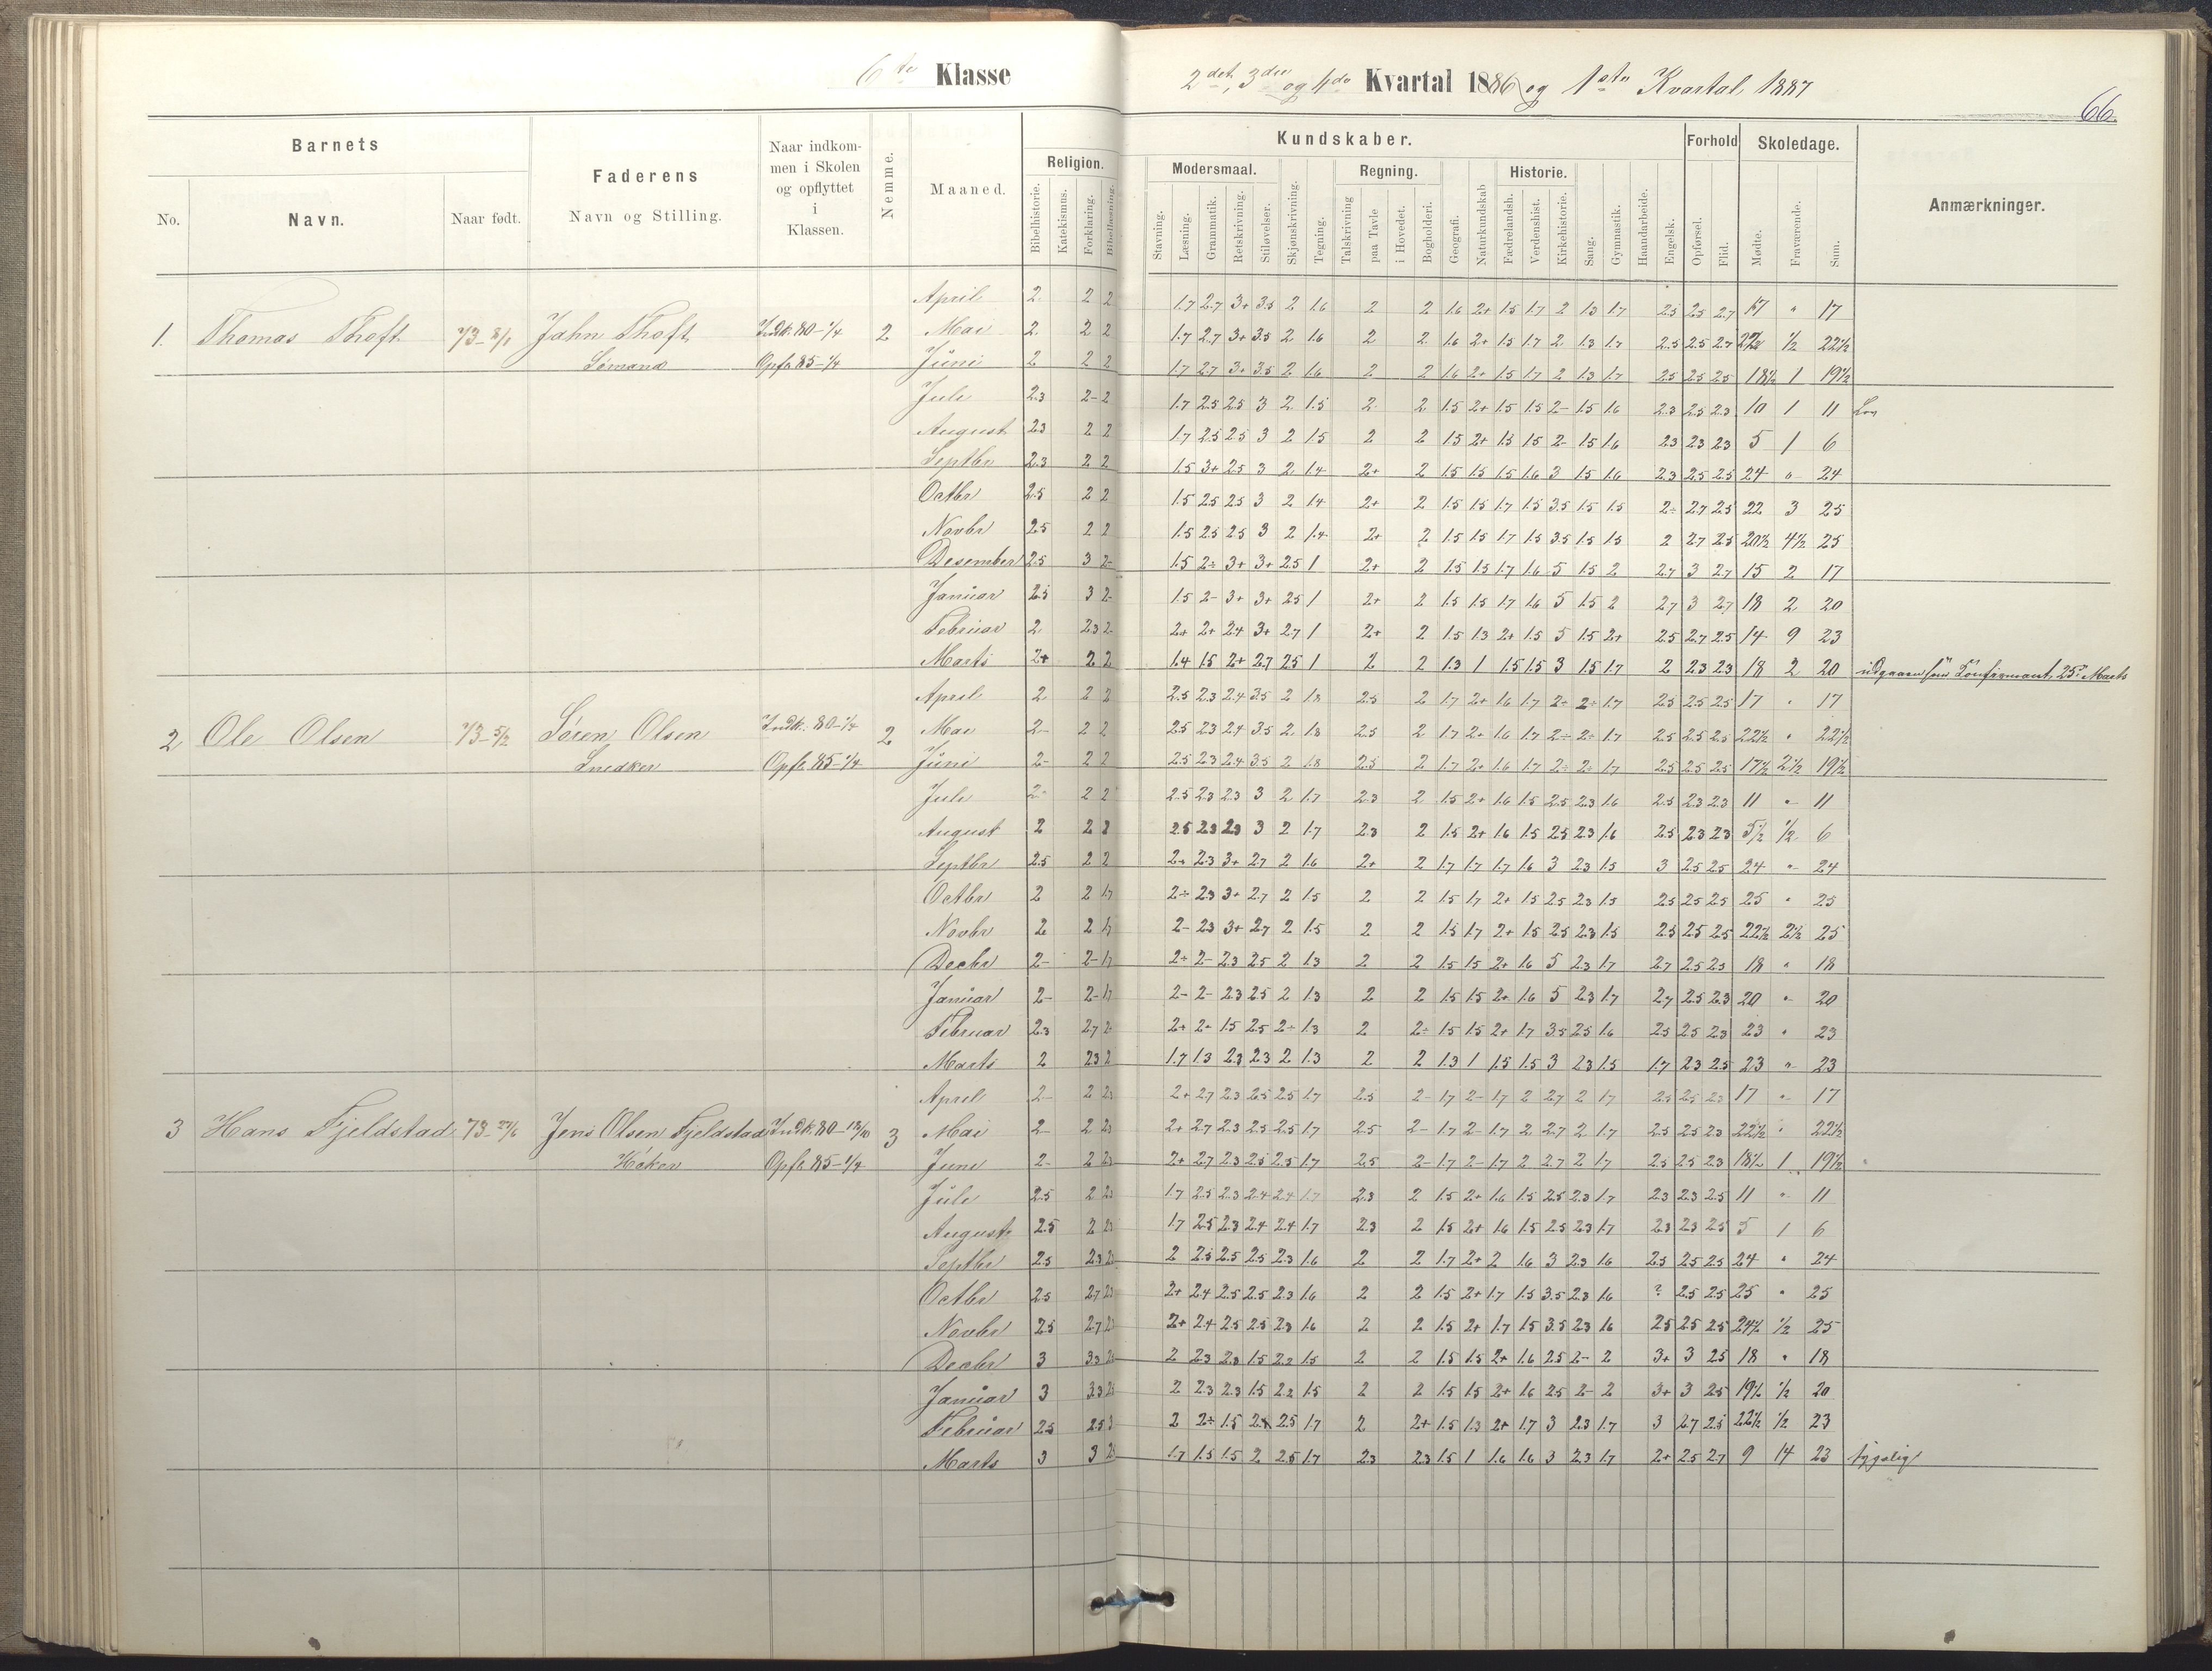 6te Klasse
2det, 3die og 4de Kvartal 1886 og 1ste Kvartal 1887
66.
Barnets
Faderens
Naar indkommen i Skolen og opflyttet i Klassen.
Nemme.
Maaned.
Religion.
Kundskaber.
Modersmaal.
Regning.
Historie.
Forhold
Skoledage.
Anmærkninger.
No.
Navn.
Naar født.
Navn og Stilling.
Bibelhistorie.
Katekismus.
Forklaring.
Bibellæsning.
Stavning.
Læsning.
Grammatik.
Retskrivning.
Stiløvelser.
Skjønskrivning.
Tegning.
Talskrivning
paa Tavle
i Hovedet.
Bogholderi.
Geografi.
Naturkundskab
Fædrelandsh.
Verdenshist.
Kirkehistorie.
Sang.
Gymnastik.
Haandarbeide.
Engelsk.
Opførsel.
Flid.
Mødte.
Fraværende.
Sum.
April 2 2 2 1.7 2.7 3+ 3.5 2 1.6 2 2 1.6 2+ 1.5 1.7 2 1.3 1.7 2.5 2.5 2.7 17 " 17
1. Thomas Thoft Jahn Thoft Indk. 80-1/4 2 Mai 2 2 2 1.7 2.7 3+ 3.5 2 1.6 2 2 1.6 2+ 1.5 1.7 2 1.3 1.7 2.5 2.5 2.7 22 1/2 22 1/2
Sømand Opfl. 85-1/4 Juni 2 2 2 1.7 2.7 3+ 3.5 2 1.6 2 2 1.6 2+ 1.5 1.7 2 1.3 1.7 2.5 2.5 2.5 18 1/2 1 19 1/2
Juli 2.3 2- 2 1.7 2.5 2.5 3 2 1.5 2 2 1.5 2+ 1.5 1.5 2- 1.5 1.6 2.3 2.5 2.3 10 1 11
August 2.3 2 2 1.7 2.5 2.5 3 2 1.5 2 2 1.5 2+ 1.5 1.5 2- 1.5 1.6 2.3 2.3 2.3 5 1 6
Septbr 2.3 2 2 1.5 3+ 2.5 3 2 1.4 2+ 2 1.5 1.5 1.5 1.6 3 1.5 1.6 2.3 2.5 2.5 24 " 24
Octbr 2.5 2 2 1.5 2.5 2.5 3 2 1.4 2+ 2 1.5 1.5 1.7 1.5 3.5 1.5 1.5 2÷ 2.7 2.5 22 3 25
Novbr 2.5 2 2 1.5 2.5 2.5 3 2 1.4 2+ 2 1.5 1.5 1.7 1.5 3.5 1.5 1.5 2 2.7 2.5 20 1/2 4 1/2 25
Desember 2.5 3 2- 1.5 2÷ 3+ 3+ 2.5 1 2+ 2 1.5 1.5 1.7 1.6 5 1.5 2 2.7 3 2.7 15 2 17
Januar 2.5 3 2- 1.5 2- 3+ 3+ 2.5 1 2+ 2 1.5 1.5 1.7 1.6 5 1.5 2 2.7 3 2.7 18 2 20
Februar 2 2.3 2- 2+ 2+ 2.4 3+ 2.7 1 2+ 2 1.5 1.3 2+ 1.5 5 1.5 2+ 2.5 2.7 2.5 14 9 23
Marts 2+ 2 2 1.4 1.5 2+ 2.7 2.5 1 2 2 1.3 1 1.5 1.5 3 1.5 1.7 2 2.3 2.3 18 2 20 udgaaen som Confirmant, 25de Marts
April 2 2 2 2.5 2.3 2.4 3.5 2 1.8 2.5 2 1.7 2+ 1.6 1.7 2÷ 2÷ 1.7 2.5 2.5 2.5 17 " 17
2 Ole Olsen 73-5/2 Søren Olsen Indk. 80-1/4 2 Mai 2- 2 2 2.5 2.3 2.4 3.5 2 1.8 2.5 2 1.7 2+ 1.6 1.7 2÷ 2÷ 1.7 2.5 2.5 2.5 22 1/2 " 22 1/2
Snedker Opfl. 85-1/4 Juni 2- 2 2 2.5 2.3 2.4 3.5 2 1.8 2.5 2 1.7 2+ 1.6 1.7 2÷ 2÷ 1.7 2.5 2.5 2.5 17 1/2 2 1/2 19 1/2
Juli 2- 2 2 2.5 2.3 2.3 3 2 1.7 2.3 2 1.5 2+ 1.6 1.5 2.5 2.3 1.6 2.5 2.3 2.3 11 " 11
August 2 2 2 2.5 2.3 2.3 3 2 1.7 2.3 2 1.5 2+ 1.6 1.5 2.5 2.3 1.6 2.5 2.3 2.3 5 1/2 1/2 6
Septbr 2.5 2 2 2+ 2.3 3+ 2.7 2 1.6 2+ 2 1.7 1.7 1.7 1.6 3 2.3 1.5 3 2.5 2.5 24 " 24
Octbr 2 2 1.7 2÷ 2.3 3+ 2.7 2 1.5 2 2 1.5 1.7 2+ 1.5 2.5 2.3 1.5 2.5 2.5 2.5 25 " 25
Novbr 2 2 1.7 2- 2.3 3+ 2.7 2 1.5 2 2 1.5 1.7 2+ 1.5 2.5 2.3 1.5 2.5 2.5 2.5 22 1/2 2 1/2 25
Decbr 2- 2- 1.7 2÷ 2- 2.3 2.5 2 1.3 2 2 1.5 1.5 2+ 1.6 5 2.3 1.7 2.7 2.5 2.3 18 " 18
Januar 2- 2- 1.7 2- 2- 2.3 2.5 2 1.3 2 2 1.5 1.5 2+ 1.6 5 2.3 1.7 2.7 2.5 2.3 20 " 20
Februar 2.3 2.7 2- 2+ 2+ 1.5 2.5 2÷ 1.3 2 2÷ 1.5 1.5 2+ 1.7 3.5 2.5 1.6 2.5 2.5 2.3 23 " 23
Marts 2 2.3 2 1.7 1.3 2.3 2.3 2 1.3 2 2 1.3 1 1.5 1.5 3 2.3 1.5 1.7 2.3 2.5 23 " 23
April 2- 2 2.3 2+ 2.7 2.3 2.5 2.5 1.7 2.5 2- 1.7 2- 1.7 2 2.7 2 1.7 2.5 2.5 2.3 17 " 17
3 Hans Fjeldstad 73-24/6 Jens Olsen Fjeldstad Indk. 80-12/10 3 Mai 2- 2 2.3 2+ 2.7 2.3 2.5 2.5 1.7 2.5 2- 1.7 2- 1.7 2 2.7 2 1.7 2.5 2.5 2.3 22 1/2 " 22 1/2
Høker Opfl. 85-1/4 Juni 2- 2 2.3 2+ 2.7 2.3 2.5 2.5 1.7 2.5 2- 1.7 2- 1.7 2 2.7 2 1.7 2.5 2.5 2.3 18 1/2 1 19 1/2
Juli 2.5 2 2.3 1.7 2.5 2.3 2.4 2.4 1.7 2.3 2 1.5 2+ 1.6 1.5 2.5 2.3 1.7 2.3 2.3 2.5 11 " 11
August 2.5 2 2.3 1.7 2.5 2.3 2.4 2.4 1.7 2.3 2 1.5 2+ 1.6 1.5 2.5 2.3 1.7 2.3 2.3 2.5 5 1 6
Septbr 2.5 2.3 2.3 2 2.5 2.5 2.5 2.3 1.6 2 2 1.7 2+ 2 1.6 3 2.3 1.6 2.5 2.5 2.5 24 " 24
Octbr 2.5 2.7 2.3 2+ 2.4 2.5 2.5 2.3 1.6 2 2 1.5 2+ 1.7 1.5 3.5 2.3 1.6 ? 2.5 2.5 25 " 25
Novbr 2.5 2.7 2.3 2+ 2.4 2.5 2.5 2.3 1.6 2 2 1.5 2+ 1.7 1.5 3.5 2.3 1.6 2.5 2.5 2.5 24 1/2 1/2 25
Decbr 3 3.3 2 2.3 2.3 1.5 2.2 1.5 2 2 1.5 1.5 2+ 1.6 2.5 2- 2 3+ 3 2.5 18 " 18
Januar 3 3.3 2 2.3 2.3 1.5 2.2 1.5 2 2 1.5 1.5 2+ 1.6 2.5 2- 2 3+ 3 2.5 19 1/2 1/2 20
Februar 2.5 2.5 2 2÷ 1.5 2.5 1.7 2 2+ 1.5 1.3 2+ 1.7 3 2.3 1.7 3 2.7 2.5 22 1/2 1/2 23
Marts 3 3 1.7 1.5 1.5 2 2.5 1.7 2.3 2.3 1.5 1 1.6 1.6 3 2.3 1.7 2+ 2.5 2.7 9 14 23 sygelig